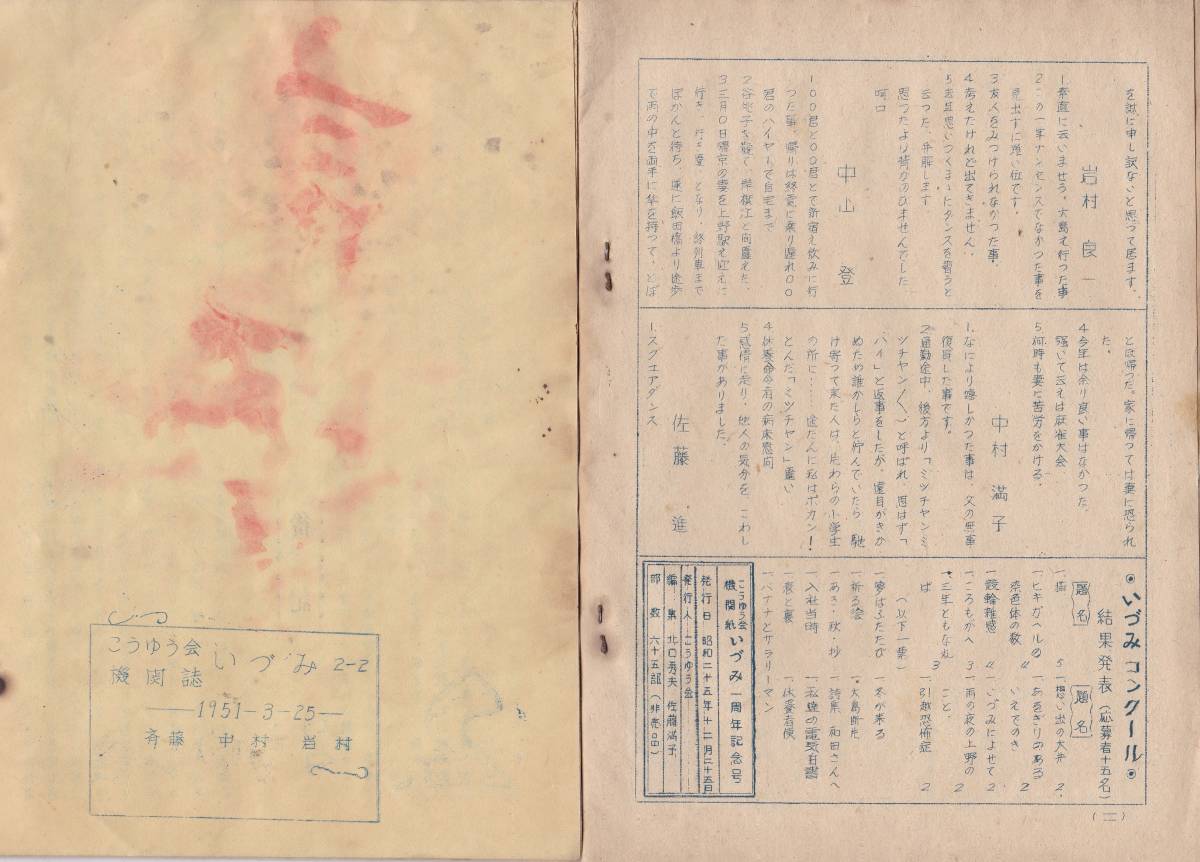 を誠に申し訳ないと思つて居ます。
岩村良一
1 素直に云いませう。大島え行つた事
2 この一年ナンセンスでなかつた事を
見出すに難い位です。
3 友人をみつけられなかつた事。
4 考えたけれど出てきません。
5 去年思いつくまゝにダンスを習うと
云つた、弁解します
思つたより背がのびませんでした
呵々
中山登
1 〇〇君と〇〇君とで新宿え飲みに行
つた事。帰りは終電に乗り遅れ〇〇
君のハイヤーで自宅まで
3 三月〇日帰京の妻を上野駅え迎えに
ぽかんと待ち、遂に飯田橋より徒歩
で雨の中を両手に傘を持つて、とぼ
とぼ帰つた。家に帰つては妻に怒られ
た。
4 今年は余り良い事はなかつた。
強いて云えば麻雀大会
5 何時も妻に苦労をかける。
中村満子
1 なにより嬉しかつた事は、父の無事
復員した事です。
2 通勤途中、後方より「ミツチヤンミ
ツチヤン〱」と呼ばれ、思はず「
ハイ」と返事をしたが、遠目がきか
ぬため誰かしらと佇んでいたら 馳
け寄つて来た人は、片わらの小学生
の所に……途たんに私はポカン!
とんだ「ミツチヤン」違い
4 休養命令有の病床慰問
5 感情に走り、他人の気分を、こわし
た事がありました。
佐藤進
1. スクエアダンス
◎いづみコンクール◎
結果発表(応募者十五名)
題名
1 猫 5
1 ヒキガヘルの
染色体の数 4
1 競輪雑感 4
1 ころもがへ 3
1 三年ともなれ
ば 3
題名
1 想い出の大井 2
1 あるきざりのある
いえでのき 2
1 いづみによせて 2
1 雨の夜の上野の
こと 2
1 引越恐怖症 2
(以下一票)
1 夢はふたたび
1 祈る会
1 あさ・秋・抄
1 入社当時
1 表と裏
1 バナナとサラリーマン
1 冬が来る
1 大島断片
1 詩集 和田さんへ
1 私達の電気日誌
1 休養者便
こうゆう会
機関紙 いづみ 一周年記念号
発行日 昭和二十五年十二月二十五日
発行人 こうゆう会
編集 北口秀夫 佐藤満子
部数 六十五部(非売品)
(二)
こうゆう会
機関誌 いづみ 2-2
1951-3-25
斉藤 中村 岩村